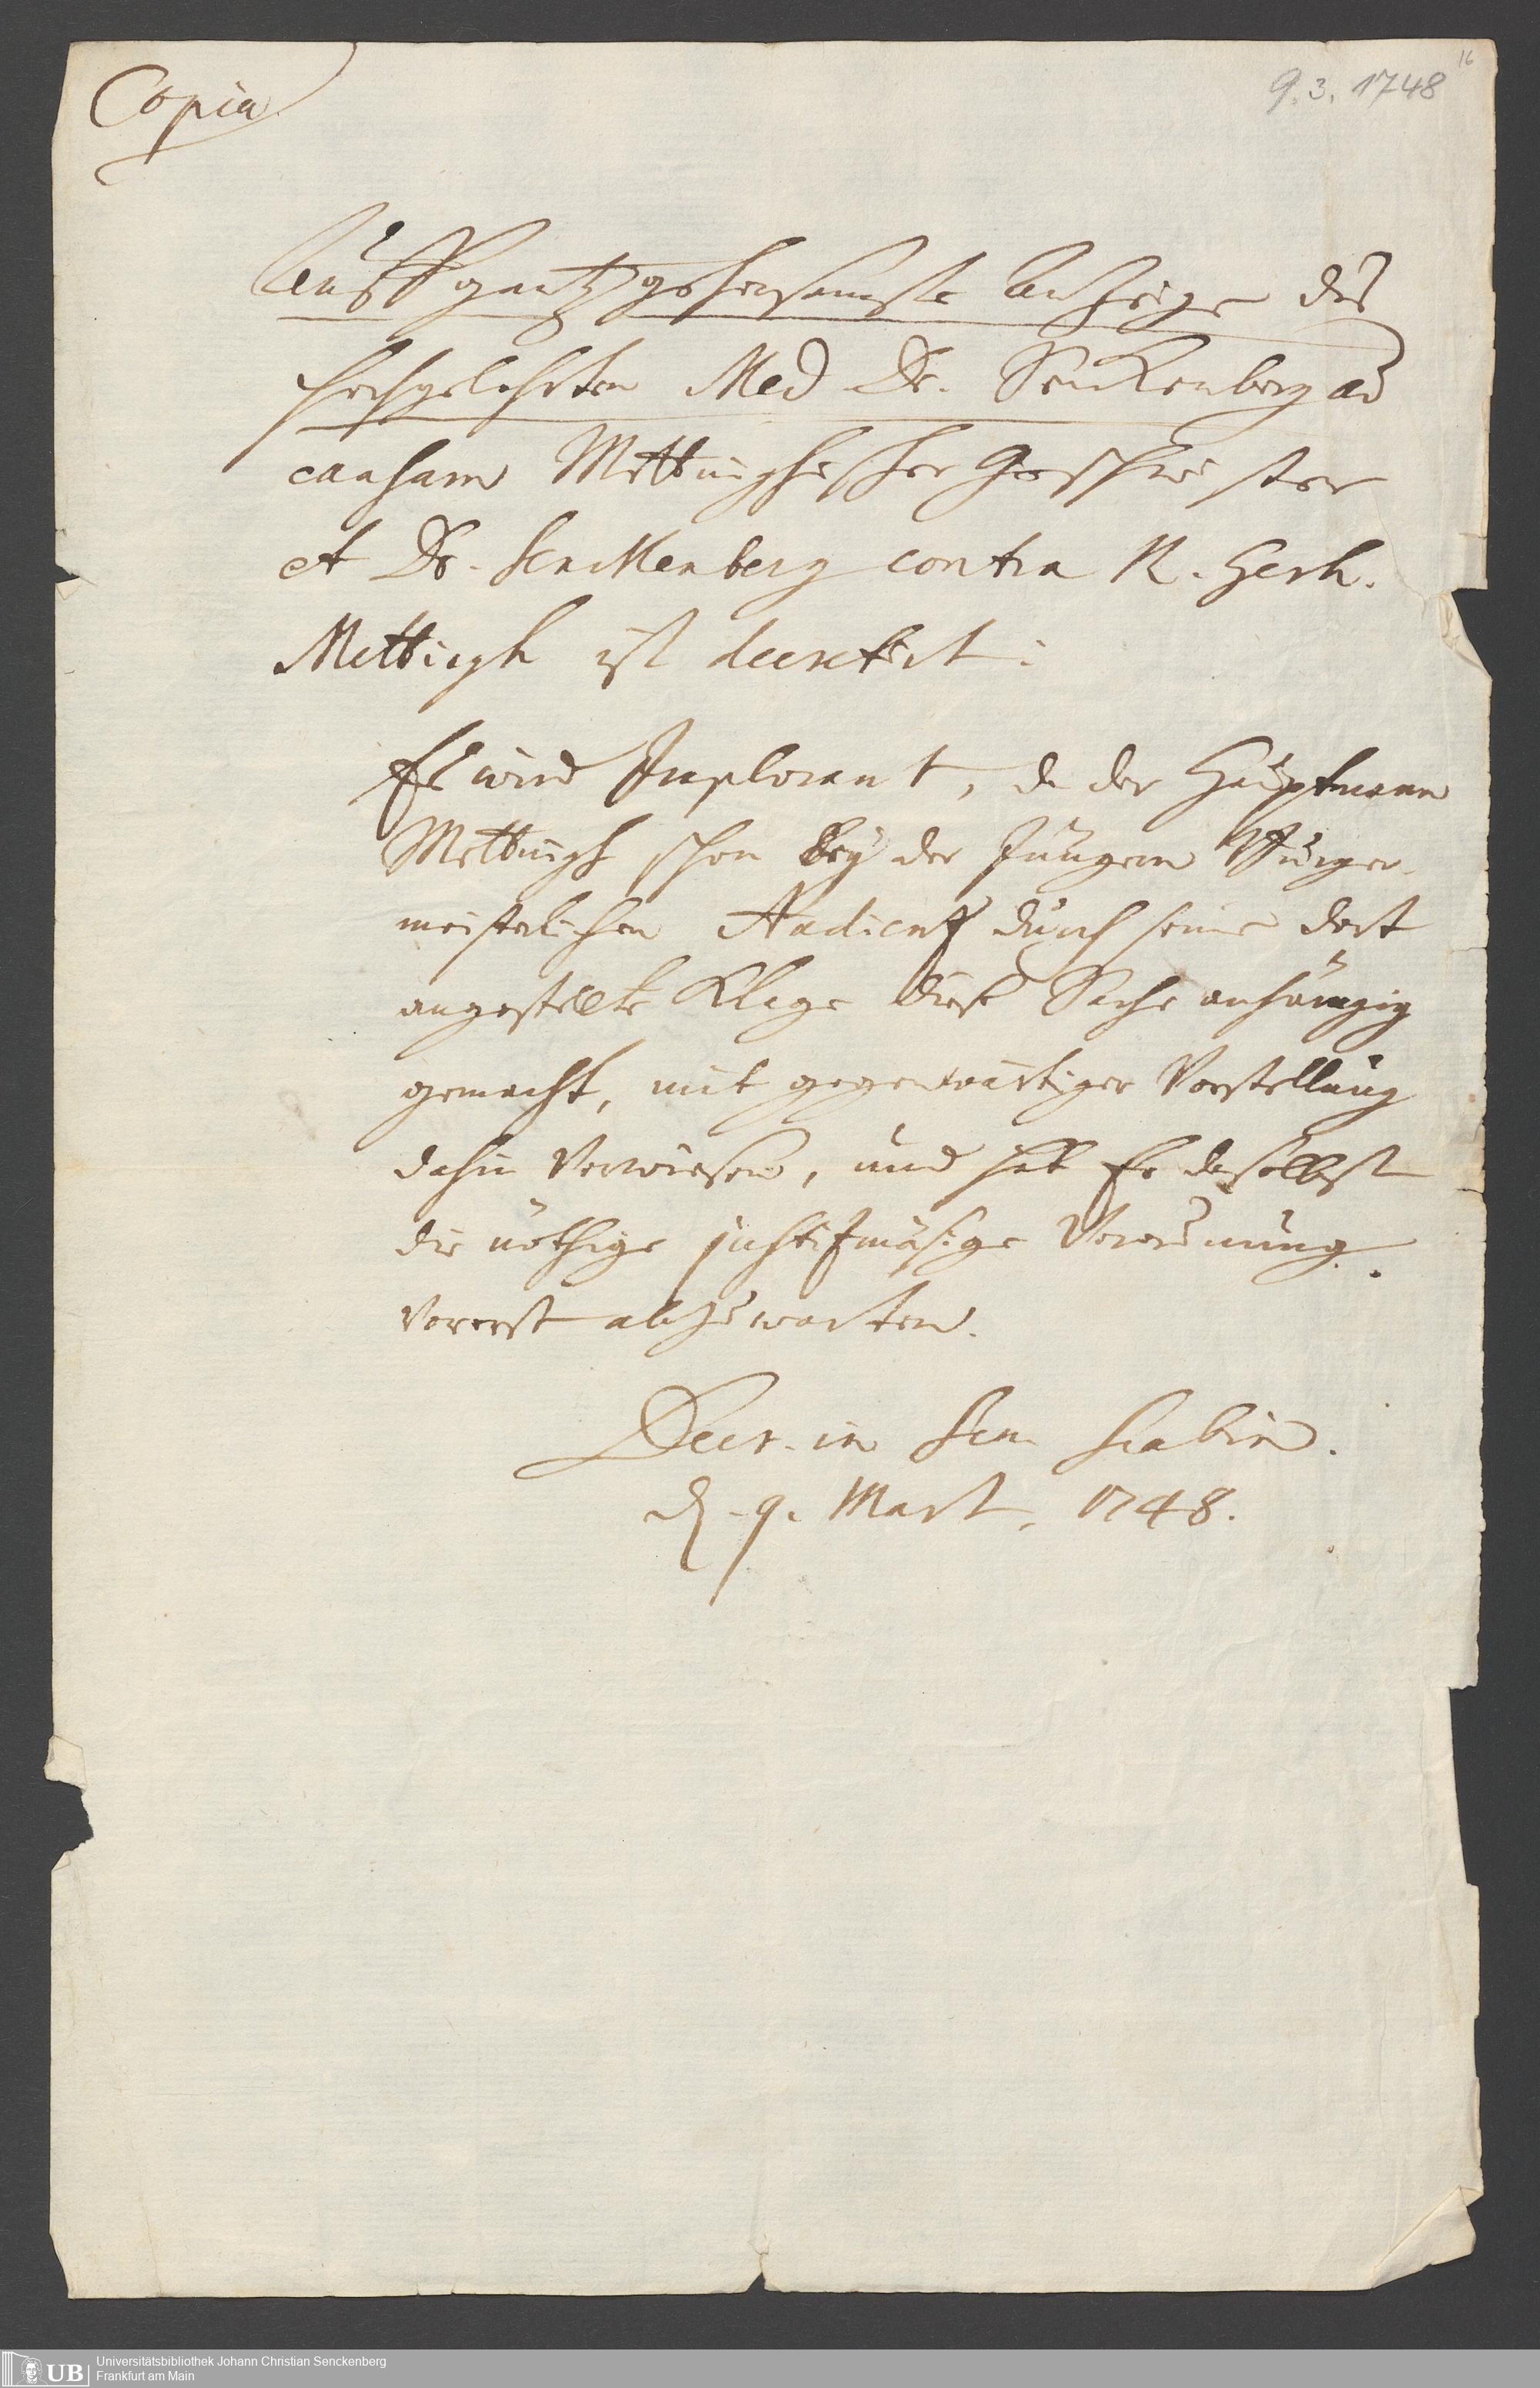 Copia
9.3.1748
16
Auff gantz gehorsamste Anzeige des
hochgelehrten Med Dr. Senckenberg ad
causam Mettinghischer Geschwister
et Dr. Senckenberg contra R. Gerh.
Mettingh ist decretirt:
Es wird Implorant, da der Hauptmann
Mettingh schon bey der Jüngern Bürger-
meisterlichen Audientz durch seine dort
angestellte Klage diese Sache anhängig
gemacht, mit gegenwärtiger Vorstellung
dahin verwiesen, und hat Er daselbst
die nöthige justizmäsige Verordnung
vorerst abzuwarten.
Decr. in Sen. Scabin.
d. 9. Mart. 1748.
UB
Universitätsbibliothek Johann Christian Senckenberg
Frankfurt am Main